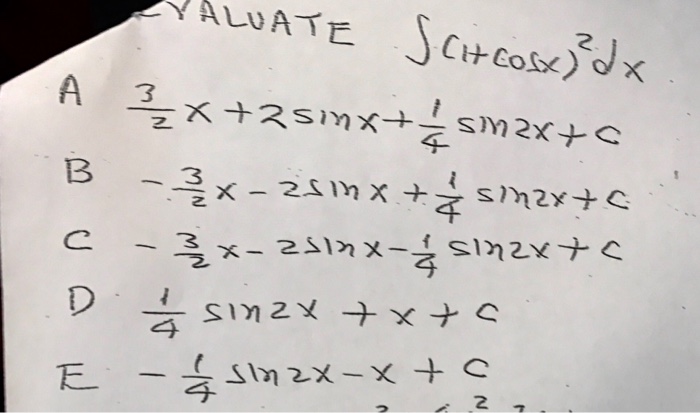 EVALUATE ∫(1+cosx)²dx
A 3/2 x + 2sinx + 1/4 sin2x + c
B - 3/2 x - 2sinx + 1/4 sin2x + c
C - 3/2 x - 2sinx - 1/4 sin2x + c
D 1/4 sin2x + x + c
E - 1/4 sin2x - x + c